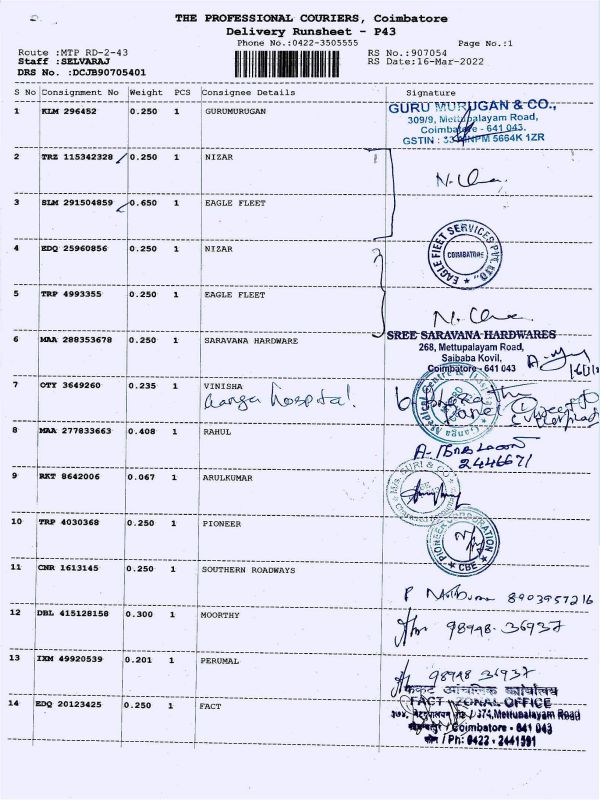 THE PROFESSIONAL COURIERS, Coimbatore
Delivery Runsheet - P43
Phone No.:0422-3505555 Page No.:1
Route :MTP RD-2-43 RS No.:907054
Staff :SELVARAJ RS Date:16-Mar-2022
DRS No. :DCJB90705401
S No Consignment No Weight PCS Consignee Details Signature
1 KLM 296452 0.250 1 GURUMURUGAN
GURU MURUGAN & CO.,
309/9, Mettupalayam Road,
Coimbatore - 641 043.
GSTIN : 33 NPM 5664K 1ZR
2 TRZ 115342328 0.250 1 NIZAR
3 SLM 291504859 0.650 1 EAGLE FLEET
EAGLE FLEET SERVICES PVT. LTD.,
COIMBATORE
4 EDQ 25960856 0.250 1 NIZAR
5 TRP 4993355 0.250 1 EAGLE FLEET
6 MAA 288353678 0.250 1 SARAVANA HARDWARE
SREE SARAVANA HARDWARES
268, Mettupalayam Road,
Saibaba Kovil,
Coimbatore - 641 043
7 OTY 3649260 0.235 1 VINISHA
Ganga hospital
Ganga Medical Centre & Hospitals
8 MAA 277833663 0.408 1 RAHUL
2446671
9 RKT 8642006 0.067 1 ARULKUMAR
M/s. SURI & CO
10 TRP 4030368 0.250 1 PIONEER
PIONEER CORPORATION
CBE
11 CNR 1613145 0.250 1 SOUTHERN ROADWAYS
8903957216
12 DBL 415128158 0.300 1 MOORTHY
98948-36937
13 IXM 49920539 0.201 1 PERUMAL
98948 36937
14 EDQ 20123425 0.250 1 FACT
फैक्ट आंचलिक कार्यालय
FACT ZONAL OFFICE
374, Mettupalayam Road
Coimbatore - 641 043
Ph: 0422 - 2441591